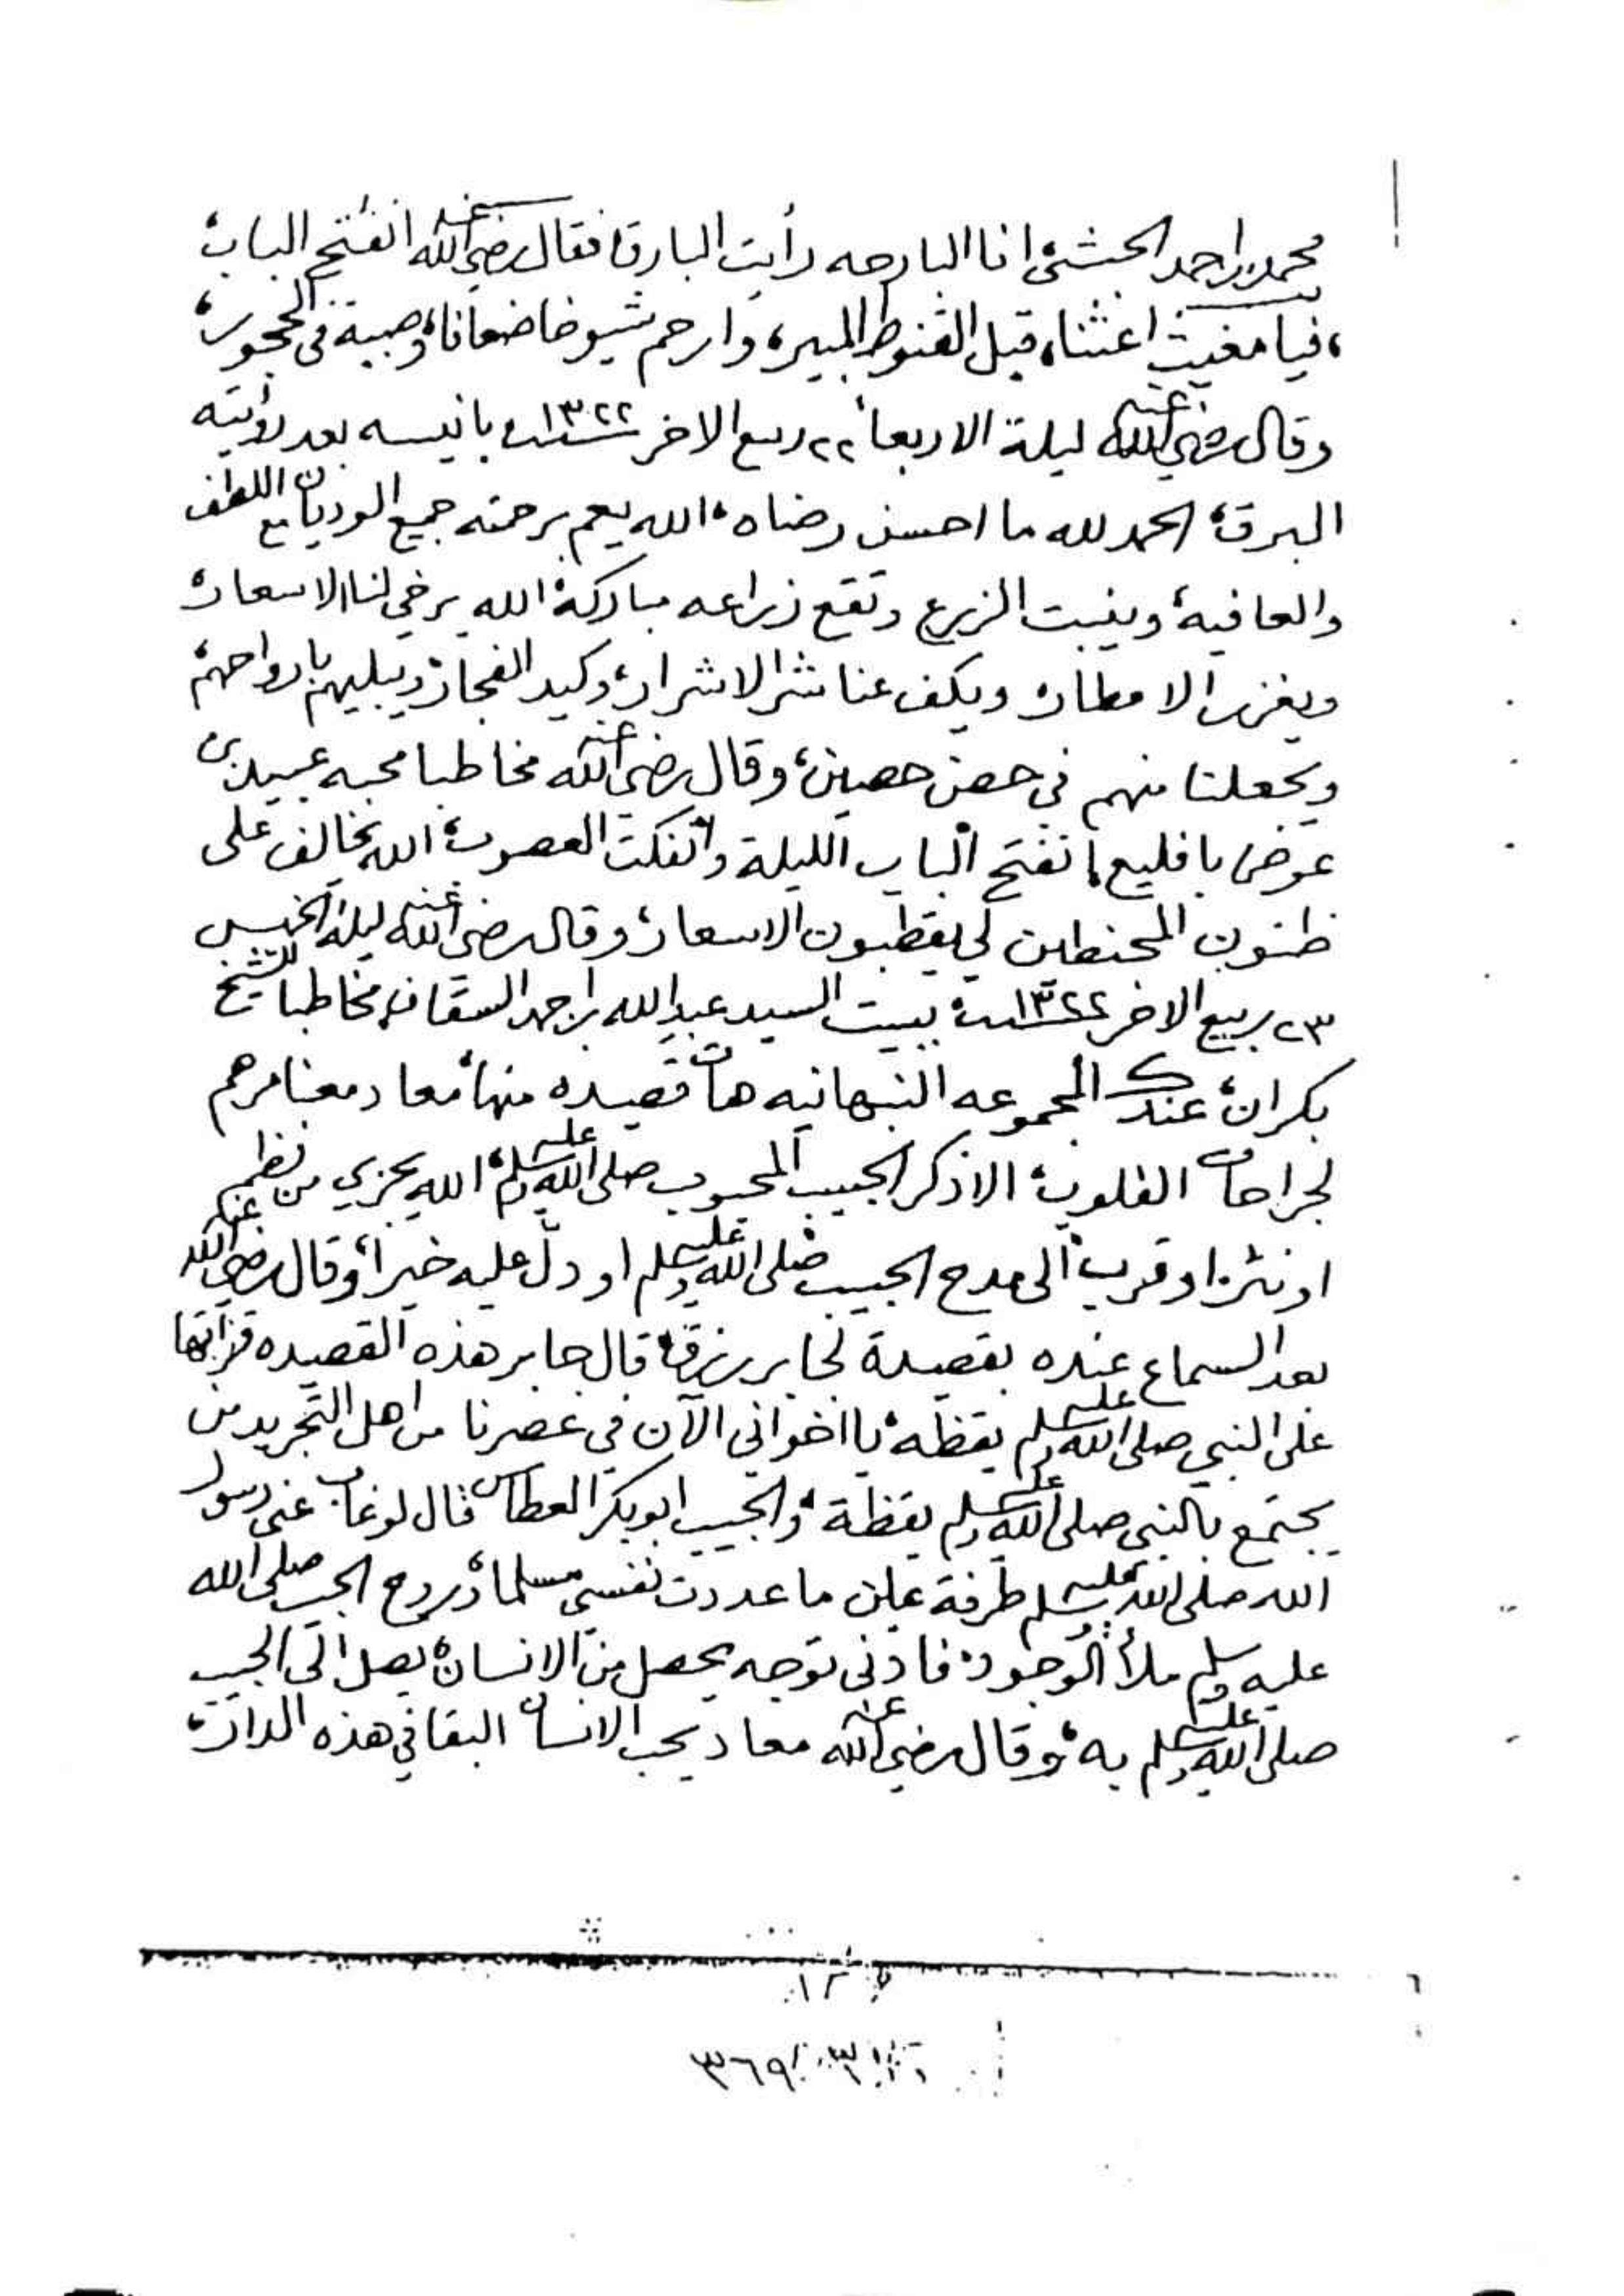 محمد بن احمد الحبشي، انا البارحه رأيت البارق، فقال رضي الله عنه انفتح الباب،
، فيا مغيث اغثنا، قبل القنوط المبير، وارحم شيوخا ضعافا، وصبية في الحجور،
وقال رضي الله عنه ليلة الاربعاء ٢٢ ربيع الاخر سنة ١٣٢٢ بانيسه بعد رؤيته
البرق، الحمد لله ما احسن رضاه، الله يعم برحمته جميع الوديان مع اللطف
والعافية، وينبت الزرع وتقع زراعه مباركة، الله يرخي لنا الاسعار،
ويغزر الامطار، ويكف عنا شر الاشرار، وكيد الفجار، ويبليهم بارواحهم،
ويجعلنا منهم في حصن حصين، وقال رضي الله عنه مخاطبا محبه عبيد بن
عوض بافليع، انفتح الباب الليلة وانفكت العصوب، الله يخالف على
ظنون المحنطين لي يقطبون الاسعار، وقال رضي الله عنه ليلة الخميس
٢٣ ربيع الاخر سنة ١٣٢٢ ببيت السيد عبد الله بن احمد السقاف، مخاطبا للشيخ
بكران، عندك المجموعه النبهانيه هات قصيده منها، معاد معنا مرهم
لجراحات القلوب، الا ذكر الحبيب المحبوب صلى الله عليه وسلم، الله يجزي من نظم
او نثر، او قرب الى مدح الحبيب صلى الله عليه وسلم او دل عليه خيرا، وقال رضي الله عنه
بعد السماع عنده بقصيدة لجابر رزق، قال جابر هذه القصيده قرأتها
على النبي صلى الله عليه وسلم يقظة، يا اخواني الآن في عصرنا من اهل التجريد من
يجتمع بالنبي صلى الله عليه وسلم يقظة، والحبيب ابوبكر العطاس قال لو غاب عني رسول
الله صلى الله عليه وسلم طرفة عين ما عددت نفسي مسلما، وروح الحبيب صلى الله
عليه وسلم ملأ الوجود، فادنى توجه يحصل من الانسان، يصل الى الحبيب
صلى الله عليه وسلم به، وقال رضي الله عنه معاد يحب الانسان البقا في هذه الدار،